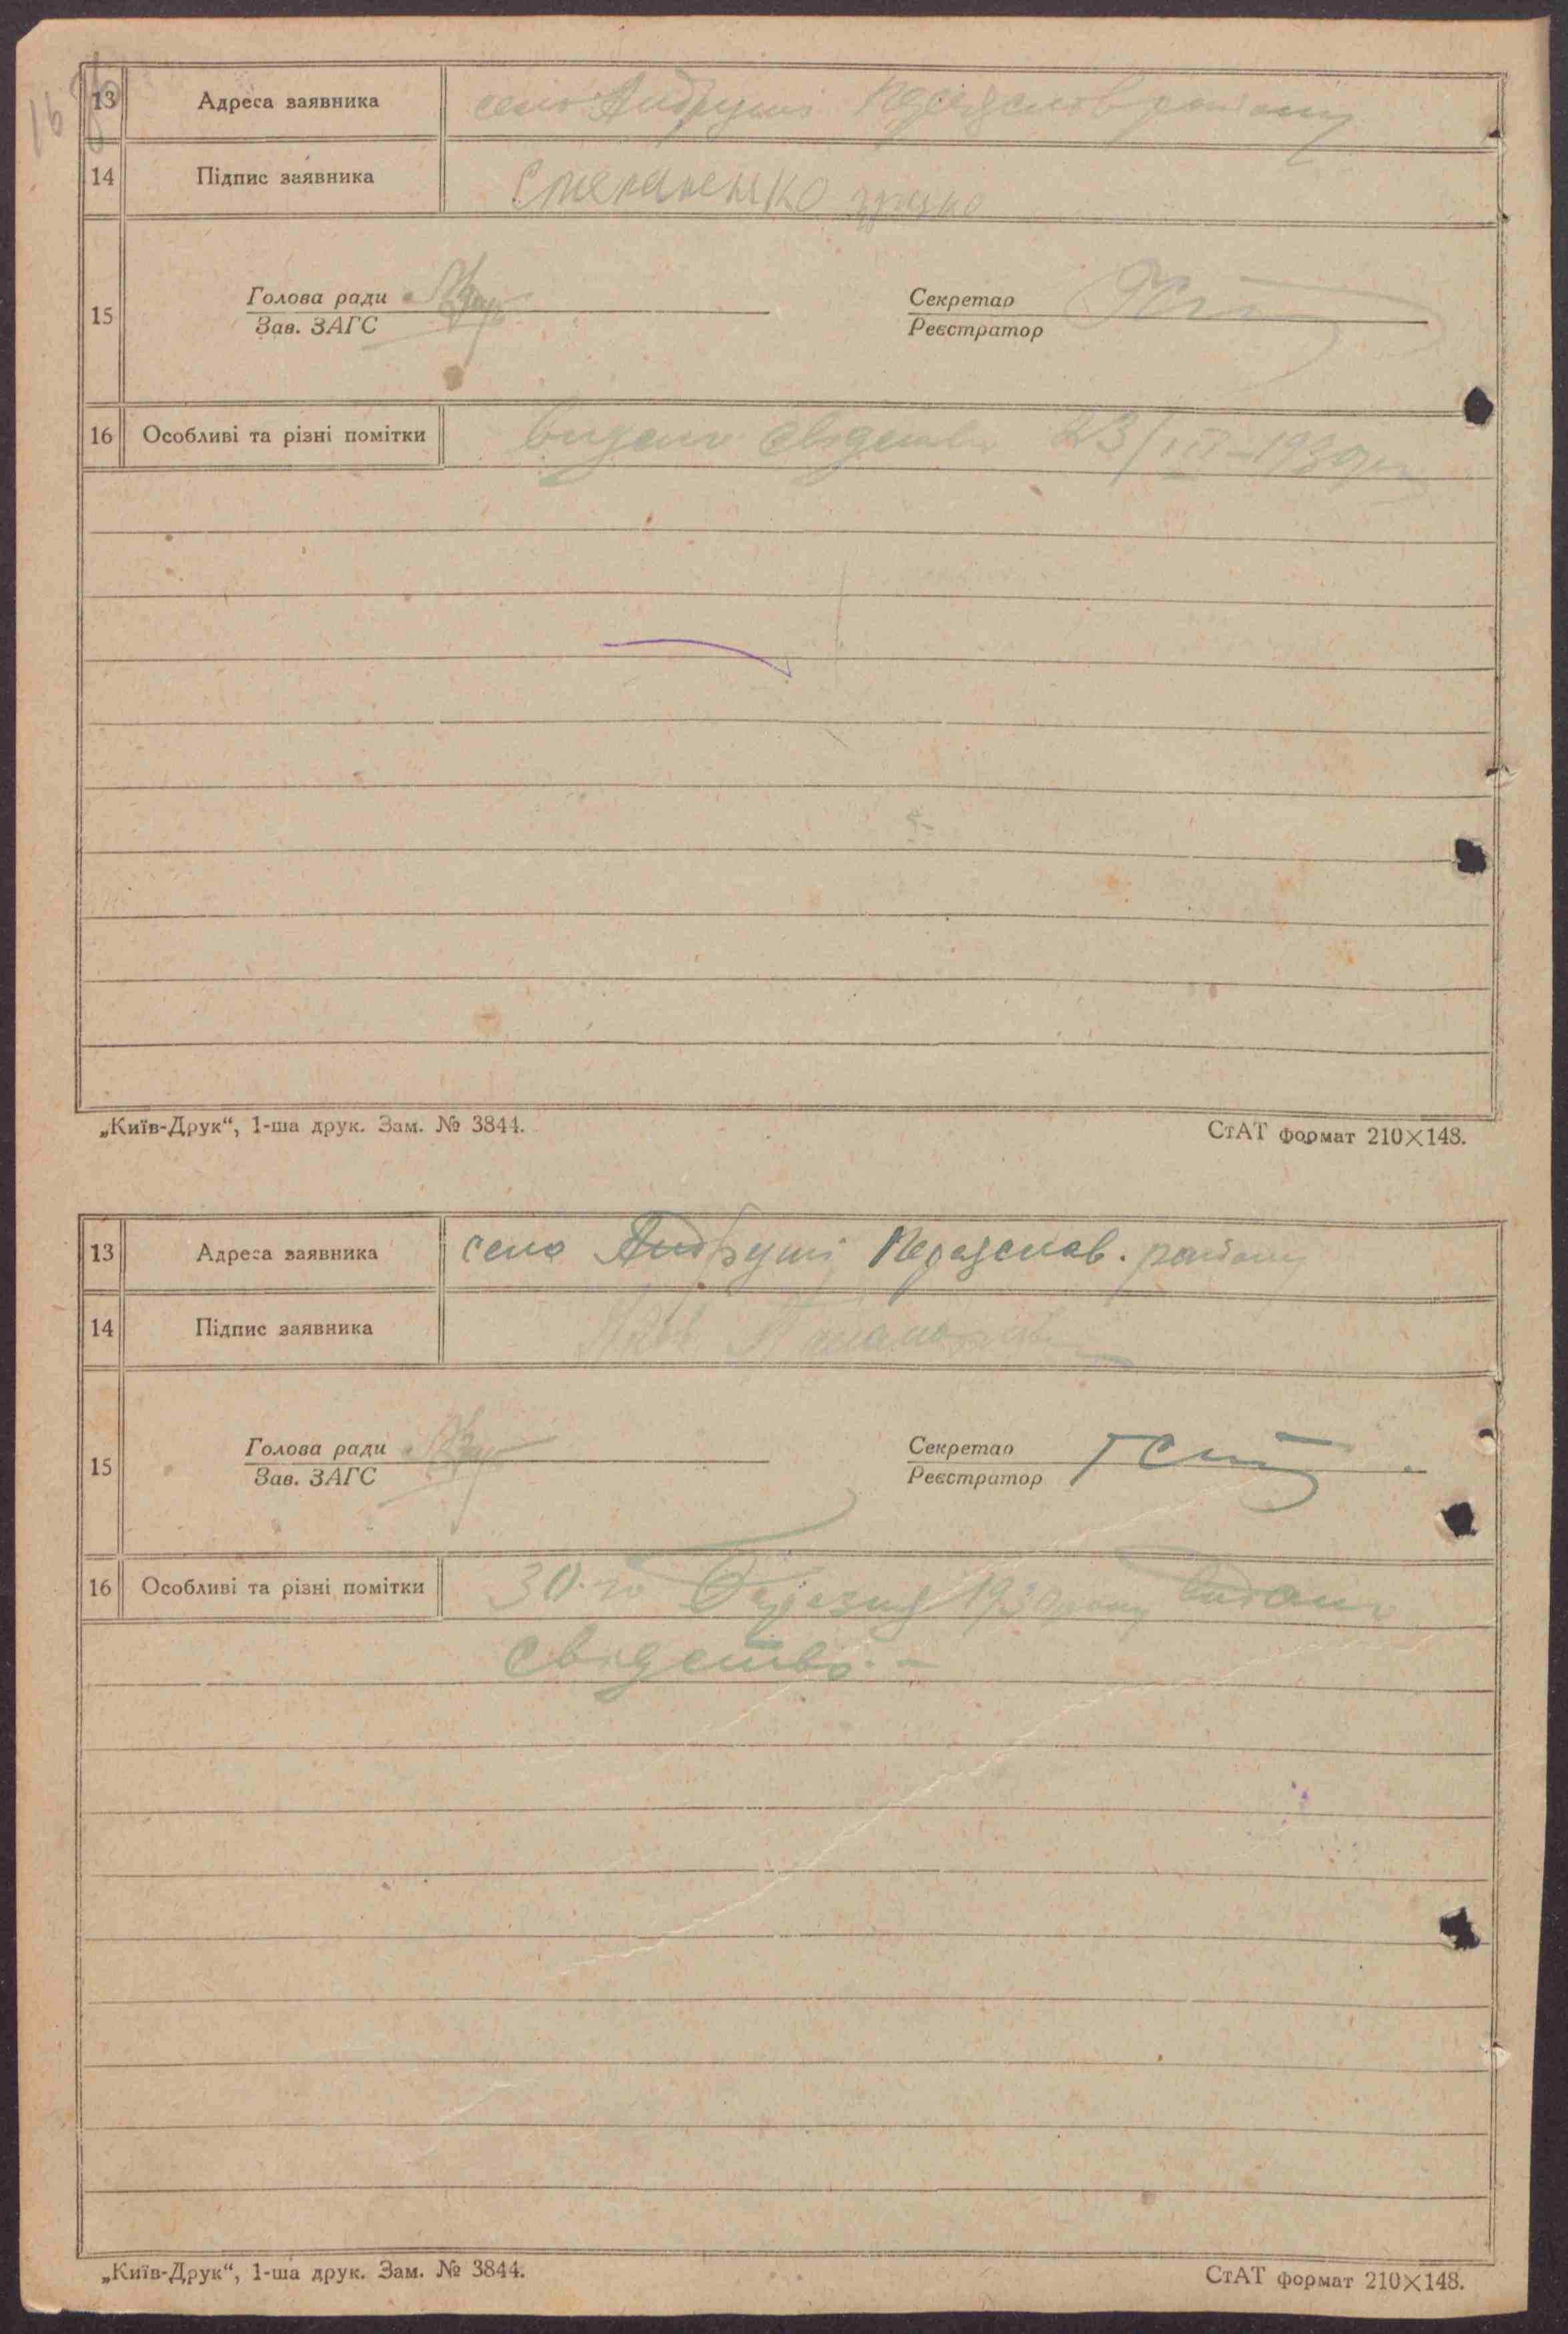 16
13 Адреса заявника село Андруші Переяслов району
14 Підпис заявника Степаненко
15 Голова ради Секретар
Зав. ЗАГС Реєстратор
16 Особливі та різні помітки видано свідоцтв 23/III-1930
„Київ-Друк“, 1-ша друк. Зам. № 3844. СтАТ формат 210×148.
13 Адреса заявника село Андруші Переяслав. району
14 Підпис заявника
15 Голова ради Секретар
Зав. ЗАГС Реєстратор
16 Особливі та різні помітки 30-го Березня 1930 року видано
свідецтво. –
„Київ-Друк“, 1-ша друк. Зам. № 3844. СтАТ формат 210×148.